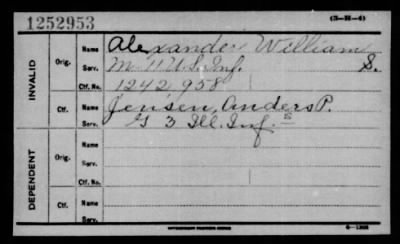 1252953 (3-H-4)
INVALID
Orig. Name Alexander William S.
Serv. M 11 U.S. Inf.
Ctf. No. 1242 958
Ctf. Name Jensen, Anders P.
Serv. G 3 Ill. Inf.
DEPENDENT
Orig. Name
Serv.
Ctf. No.
Ctf. Name
Serv.